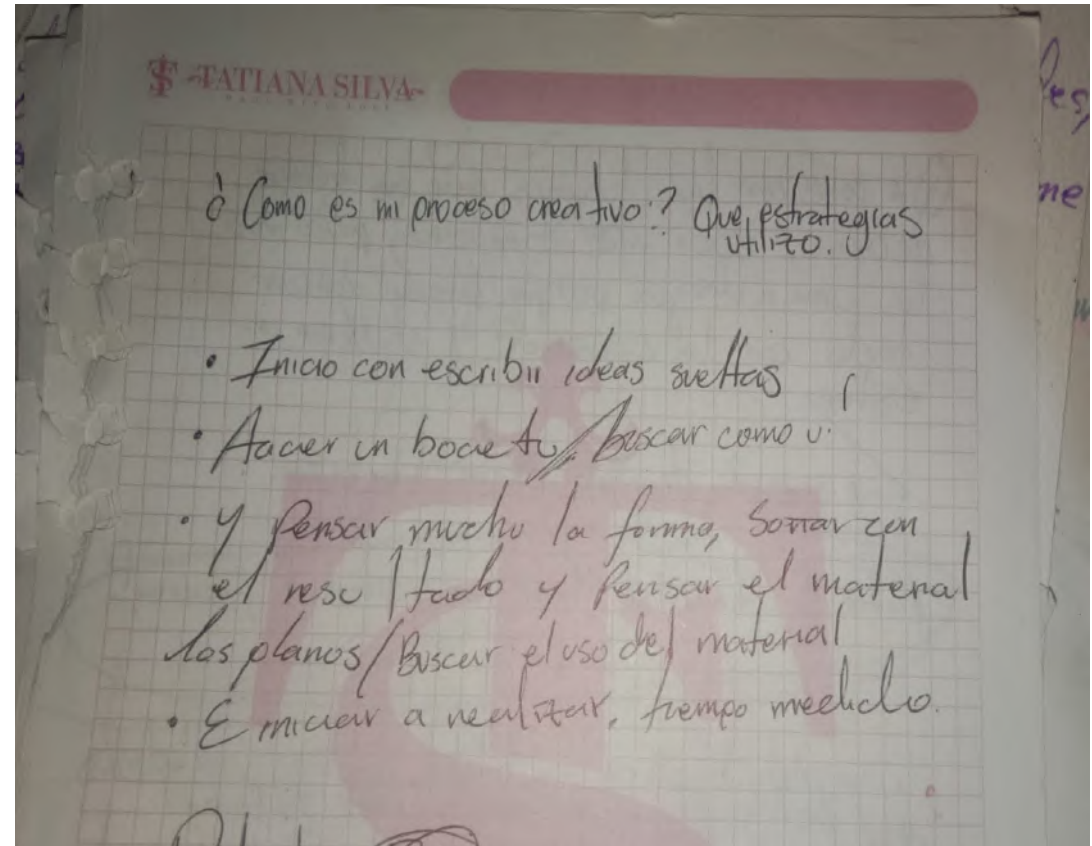 TATIANA SILVA
¿ Como es mi proceso creativo? Que estrategias
utilizo.
• Inicio con escribir ideas sueltas
• Hacer un boceto / buscar como
• Y Pensar mucho la forma, Soñar con
el resultado y Pensar el material
los planos / Buscar el uso del material
• E iniciar a realizar, tiempo medido.